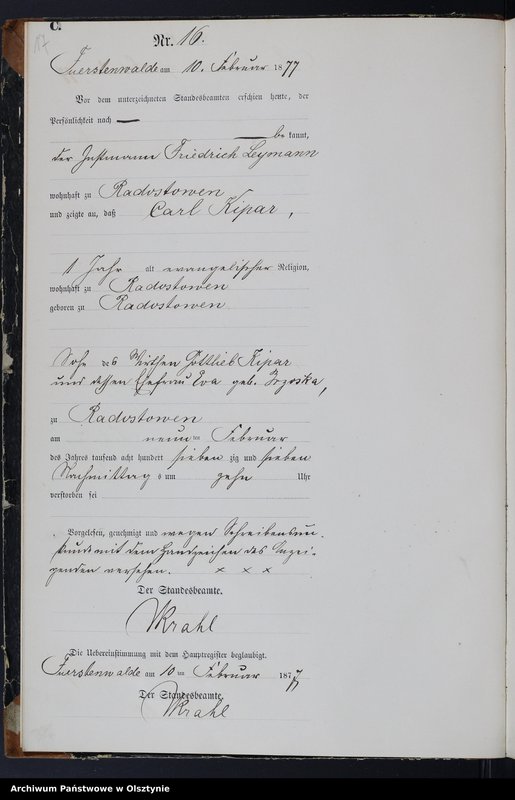 C.
Nr. 16.
Fuerstenwalde am 10. Februar 1877
Vor dem unterzeichneten Standesbeamten erschien heute, der
Persönlichkeit nach
be kannt,
der Instmann Friedrich Leymann
wohnhaft zu Radostowen
und zeigte an, daß Carl Kipar,
1 Jahr alt evangelischer Religion,
wohnhaft zu Radostowen
geboren zu Radostowen
Sohn des Wirthen Gottlieb Kipar
und dessen Ehefrau Eva geb.
zu Radostowen
am neunten Februar
des Jahres tausend acht hundert siebenzig und sieben
Nachmittags um zehn Uhr
verstorben sei
Vorgelesen, genehmigt und wegen Schreibensun-
kunde mit dem Handzeichen des Anzei-
genden versehen. x x x
Der Standesbeamte.
Krahl
Die Uebereinstimmung mit dem Hauptregister beglaubigt.
Fuerstenwalde am 10ten Februar 1877
Der Standesbeamte.
Krahl
Archiwum Państwowe w Olsztynie